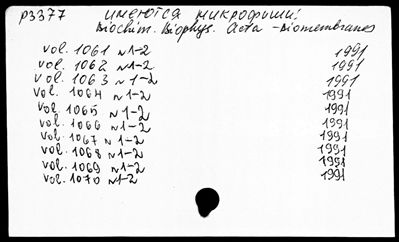 р3377 имеются микрофиши:
Biochim. Biophys. Acta - Biomembranes
vol. 1061 N 1-2 1991
vol. 1062 N 1-2 1991
vol. 1063 N 1-2 1991
vol. 1064 N 1-2 1991
vol. 1065 N 1-2 1991
vol. 1066 N 1-2 1991
vol. 1067 N 1-2 1991
vol. 1068 N 1-2 1991
vol. 1069 N 1-2 1991
vol. 1070 N 1-2 1991